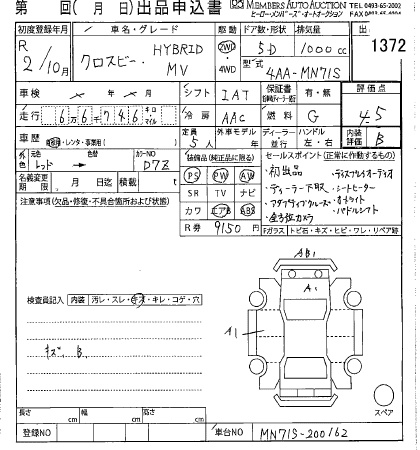 第 回( 月 日)出品申込書 MEMBERS AUTO AUCTION TEL 0493-65-2002
ヒーロー・メンバーズ・オートオークション
初度登録年月 車名・グレード 駆動 ドア数・形状 排気量 出
R 2/10月 クロスビー HYBRID MV 2WD・4WD 5D 1000cc 1372
型式 4AA-MN71S
車検 シフト IAT 保証書 有・無 評価点 4.5
走行 66746 キロ・マイル 冷房 AAC 燃料 G
車歴 自家用・レンタ・事業用( ) 定員 5人 外車モデル 年 ディーラー 並行 ハンドル 左・右 内装評価 B
色 元色 レッド 色替 カラーNO D7Z
名義変更期限 月 日迄 積載 t
装備品(純正品に限る) PS PW AW
SR TV ナビ
カワ エアB ABS
R券 9150
セールスポイント(正常に作動するもの)
・初出品 ・ディスプレイオーディオ
・ディーラー下取 ・シートヒーター
・アダプティブクルーズ ・オートライト
・全方位カメラ ・パドルシフト
Fガラス トビ石・キズ・ヒビ・ワレ・リペア跡
注意事項(欠品・修復・不具合箇所および状態)
検査員記入 内装 汚レ・スレ・キズ・キレ・コゲ・穴
キズ B
AB1
A1
A1
スペア
長さ cm 幅 cm 高さ cm
登録NO 車台NO MN71S-200162